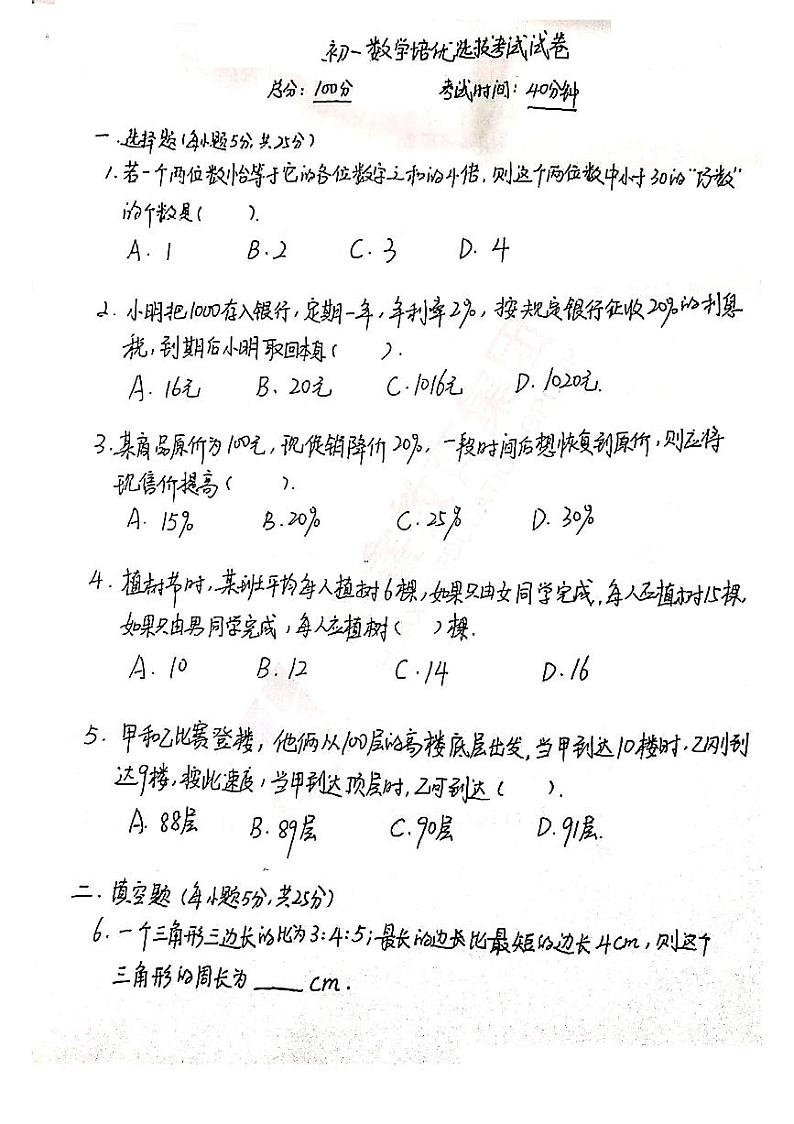 初一数学培优选拔考试试卷
总分：100分 考试时间：40分钟
一.选择题(每小题5分,共25分)
1.若一个两位数恰等于它的各位数字之和的4倍,则这个两位数中小于30的"巧数"
的个数是( ).
A.1 B.2 C.3 D.4
2.小明把1000存入银行,定期一年,年利率2%,按规定银行征收20%的利息
税,到期后小明取回本息( ).
A.16元 B.20元 C.1016元 D.1020元.
3.某商品原价为100元,现促销降价20%,一段时间后想恢复到原价,则应将
现售价提高( ).
A.15% B.20% C.25% D.30%
4.植树节时,某班平均每人植树6棵,如果只由女同学完成,每人应植树15棵,
如果只由男同学完成,每人应植树( )棵.
A.10 B.12 C.14 D.16
5.甲和乙比赛登楼,他俩从100层的高楼底层出发,当甲到达10楼时,乙刚到
达9楼,按此速度,当甲到达顶层时,乙可到达( ).
A.88层 B.89层 C.90层 D.91层.
二.填空题(每小题5分,共25分)
6.一个三角形三边长的比为3:4:5;最长的边长比最短的边长4cm,则这个
三角形的周长为____cm.